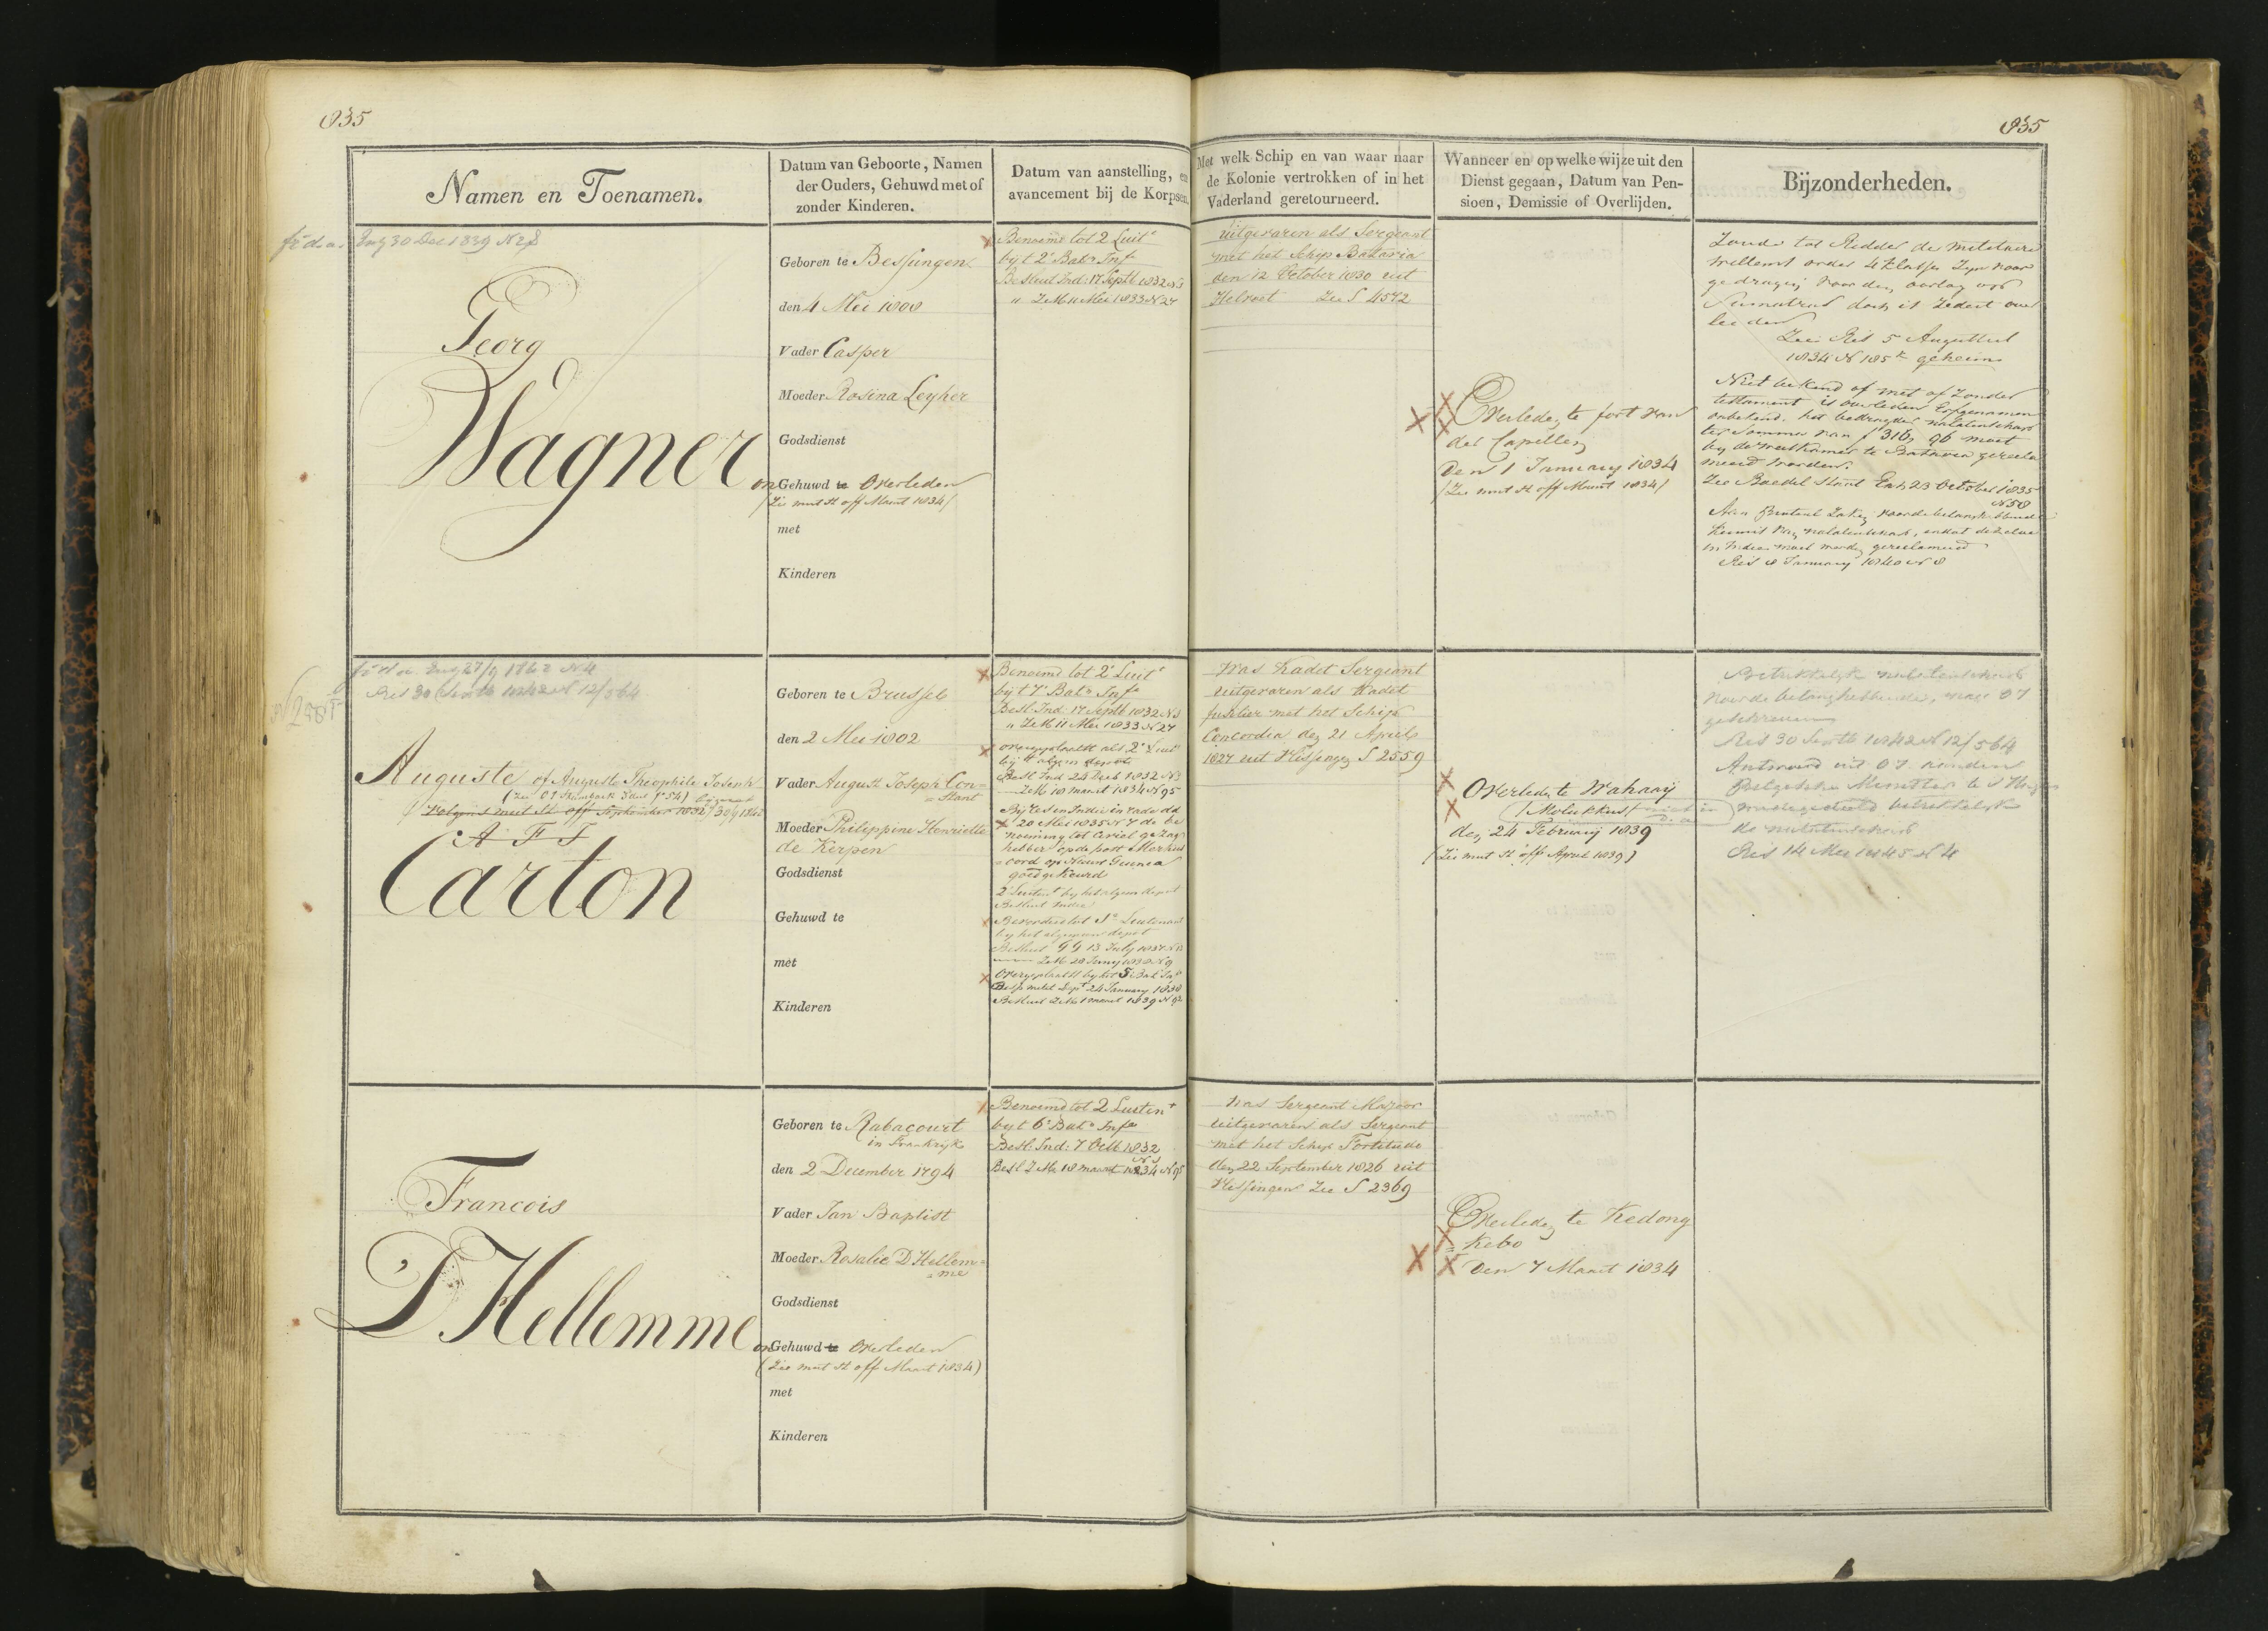 835
835
Namen en Toenamen.
Datum van Geboorte, Namen
der Ouders, Gehuwd met of
zonder Kinderen.
Datum van aanstelling, en
avancement bij de Korpsen.
Met welk Schip en van waar naar
de Kolonie vertrokken of in het
Vaderland geretourneerd.
Wanneer en op welke wijze uit den
Dienst gegaan, Datum van Pen-
sioen, Demissie of Overlijden.
Bijzonderheden.
30 Dec 1839 N 28
Georg
Wagner
Geboren te Bessungen
den 4 Mei 1808
Vader Casper
Moeder Rosina Leyher
Godsdienst
on Gehuwd te Overleden
(Zie mut st off Maart 1834)
met
Kinderen
Benoemd tot 2 Luitt
bij t 2e Baton Inf
Besluit Ind: 17 Septb 1832 N 3
" Z M 11 Mei 1833 N 27
uitgevaren als Sergeant
met het Schip Batavia
den 12 October 1830 uit
Helvoet Zie S 4572
Overleden te fort van
der Capellen
den 1 January 1834
(Zie mut st off Maart 1834)
Zoude tot Ridder der Militaire
Willems order 4 Klasse Zijn voor
gedragen voor den oorlog op
Sumatra doch is Zedert over
leeden
Zie Res 5 Augustus
1834 N 185 geheim
Niet bekend of met of Zonder
testament is overleden Erfgenamen
onbekend. het bedragder nalatenschap
ter Somma van f 316, 96 moet
bij de weeskamer te Batavia gerecla
meerd worden.
Zie Boedel Staat Exh 23 October 1835
N 58
in Indien moet worden gereclameerd
Res 8 January 1840 N 8
27/9 1842 N 4
Res 30 Septb 1842 N 12/564
Auguste of Auguste Theophile Joseph
(Zie O.I. Stamboek 3 deel f 54)
Volgens mut St. off September 1832
A F J
Carton
Geboren te Brussel
den 2 Mei 1802
Vader August Joseph Con-
=stant
Moeder Philippine Henriette
de Kerpen
Godsdienst
Gehuwd te
met
Kinderen
Benoemd tot 2e Luitt
bij t 7e Baton Infe
Besl. Ind: 17 Septb 1832 N 3
" Z M 11 Mei 1833 N 27
overgeplaatst als 2e Luit
bij t algem depot
Besl Ind 24 Decb 1832 N 3
Z M 18 maart 1834 N 95
Bij Res en Indie in rade dd
20 Mei 1835 N 7 de be
noeming tot Civiel gezag
hebber op de post Merkus
oord op Nieuw Guinea
goedgekeurd
2e Luitent bij het algem depot
Besluit Indie
Bevorderd tot 1e Luitenant
bij het algemeen depot
Besluit GG 13 July 1837 N 13
Z M 28 Juny 1838 N 9
Overgeplaatst bij het 5e Bat Inf
24 January 1838
Besluit Z M 1 maart 1839 N 92
Was Kadet Sergeant
uitgevaren als Kadet
fuselier met het Schip
Concordia den 21 April
1827 uit Vlissingen S 2559
Overleden te Wahaay
(Molukkus)
den 24 February 1839
(Zie mut st off April 1839)
Betrekkelijk nalatenschap
voor de belanghebbende, naar O I
geschreven
Res 30 Septb 1842 N 12/564
Antwoord uit O I aan den
Belgischen Minister te S Hage
medegedeeld betrekkelijk
de nalatenschap
Res 14 Mei 1845 N 4
Francois
D'Hellemme
Geboren te Rabacourt
in Frankrijk
den 2 December 1794
Vader Jan Baptist
Moeder Rosalie D Hellem=
=me
Godsdienst
on Gehuwd te Overleden
(Zie mut st off Maart 1834)
met
Kinderen
Benoemd tot 2 Lieutent
bij t 6e Baton Infe
Besl. Ind: 7 Octb 1832
N 3
Besl Z M 18 maart 1834 N 95
Was Sergeant Majoor
uitgevaren als Sergeant
met het Schip Fortitudo
den 22 September 1826 uit
Vlissingen Zie S 2369
Overleden te Kedong
=Kebo
den 7 Maart 1834